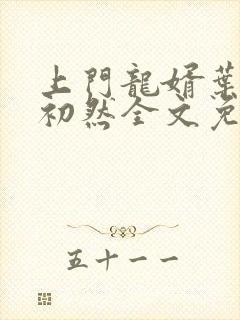 上門龍婿葉
初然全文免
五十一一